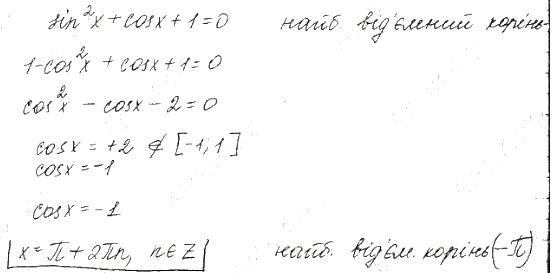 sin²x + cosx + 1 = 0 найб. від'ємний корінь-
1-cos²x + cosx + 1 = 0
cos²x - cosx - 2 = 0
cosx = +2 ∉ [-1, 1]
cosx = -1
cosx = -1
x = π + 2πn, n ∈ Z найб. від'єм. корінь (-π)